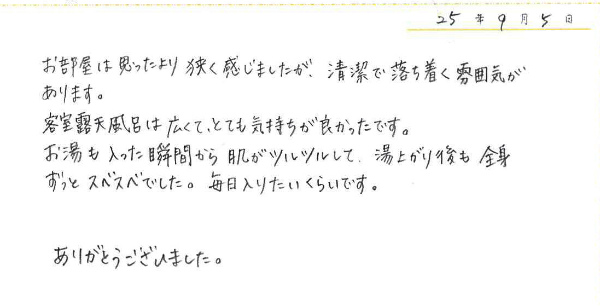 25年9月5日
お部屋は思ったより狭く感じましたが、清潔で落ち着く雰囲気が
あります。
客室露天風呂は広くて、とても気持ちが良かったです。
お湯も入った瞬間から肌がツルツルして、湯上がり後も全身
ずっとスベスベでした。毎日入りたいくらいです。
ありがとうございました。